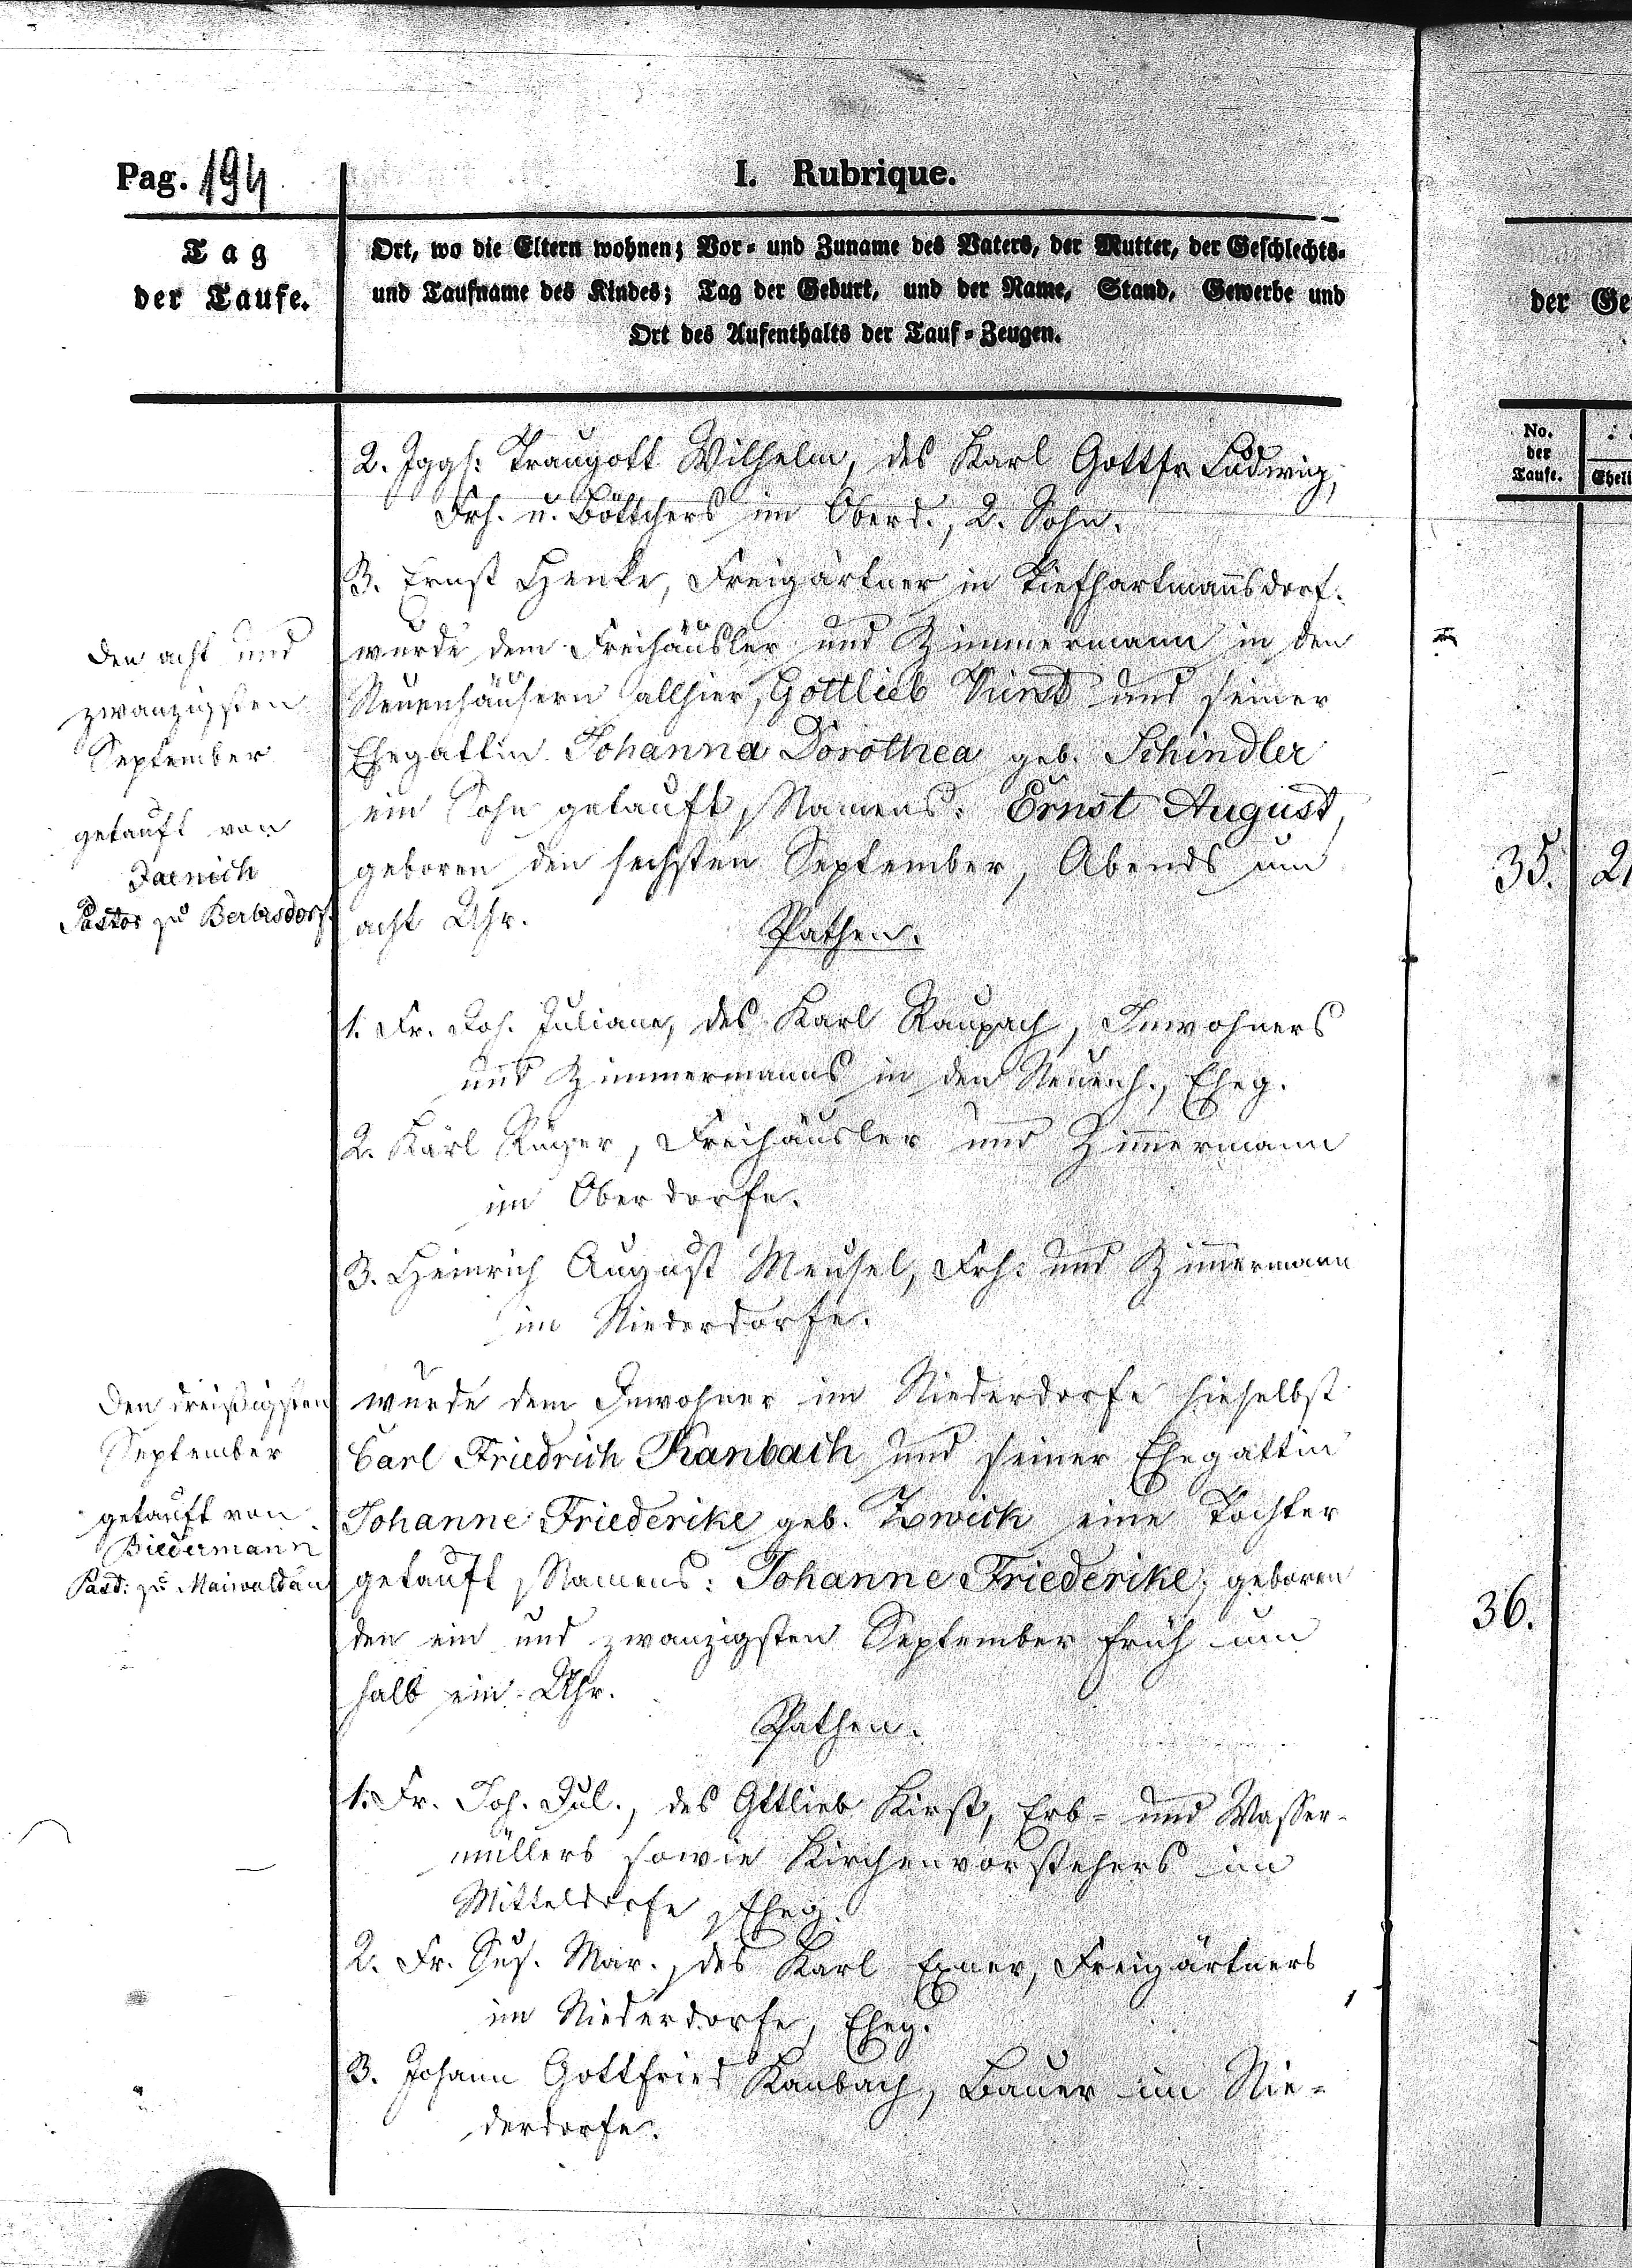 Pag. 194
I. Rubrique.
Tag
der Taufe.
Ort, wo die Eltern wohnen; Vor- und Zuname des Vaters, der Mutter, der Geschlechts-
und Taufname des Kindes; Tag der Geburt, und der Name, Stand, Gewerbe und
Ort des Aufenthalts der Tauf-Zeugen.
2. Jggs: Traugott Wilhelm, des Karl Gottfr Ludwig,
Frh. u. Böttchers im Oberd., 2. Sohn.
3. Ernst Henke, Freigärtner in Tiefhartmannsdorf.
den acht und
zwanzigsten
September
getauft von
Jaenich
Pastor zu Berbisdorf.
wurde dem Freihäusler und Zimmermann in den
Neuenhäusern allhier, Gottlieb und seiner
Ehegattin Johanna Dorothea geb. Schindler
ein Sohn getauft, Namens: Ernst August,
geboren den sechsten September, Abends um
acht Uhr.
Pathen.
1. Fr. Joh. Juliane, des Karl Raupach, Inwohners
und Zimmermanns in den Neuenh., Eheg.
2. Karl Rüger, Freihäusler und Zimmermann
im Oberdorfe.
3. Heinrich August Meusel, Frh: und Zimmermann
im Niederdorfe.
den dreißigsten
September
getauft von
Biedermann
Past: zu Maiwaldau
wurde dem Inwohner im Niederdorfe hieselbst
Carl Friedrich Kanbach und seiner Ehegattin
Johanne Friederike geb. Zwick eine Tochter
getauft, Namens: Johanne Friederike, geboren
den ein und zwanzigsten September früh um
halb ein Uhr.
Pathen.
1. Fr. Joh. Jul., des Gttlieb Kirst, Erb- und Wasser-
müllers sowie Kirchenvorstehers im
Mitteldorfe, Eheg.
2. Fr. Sus. Mar., des Karl Exner, Freigärtners
im Niederdorfe, Eheg.
3. Johann Gottfried Kanbach, Bauer im Nie-
derdorfe.
der Ge
No.
der
Taufe.
Ehel
35.
36.